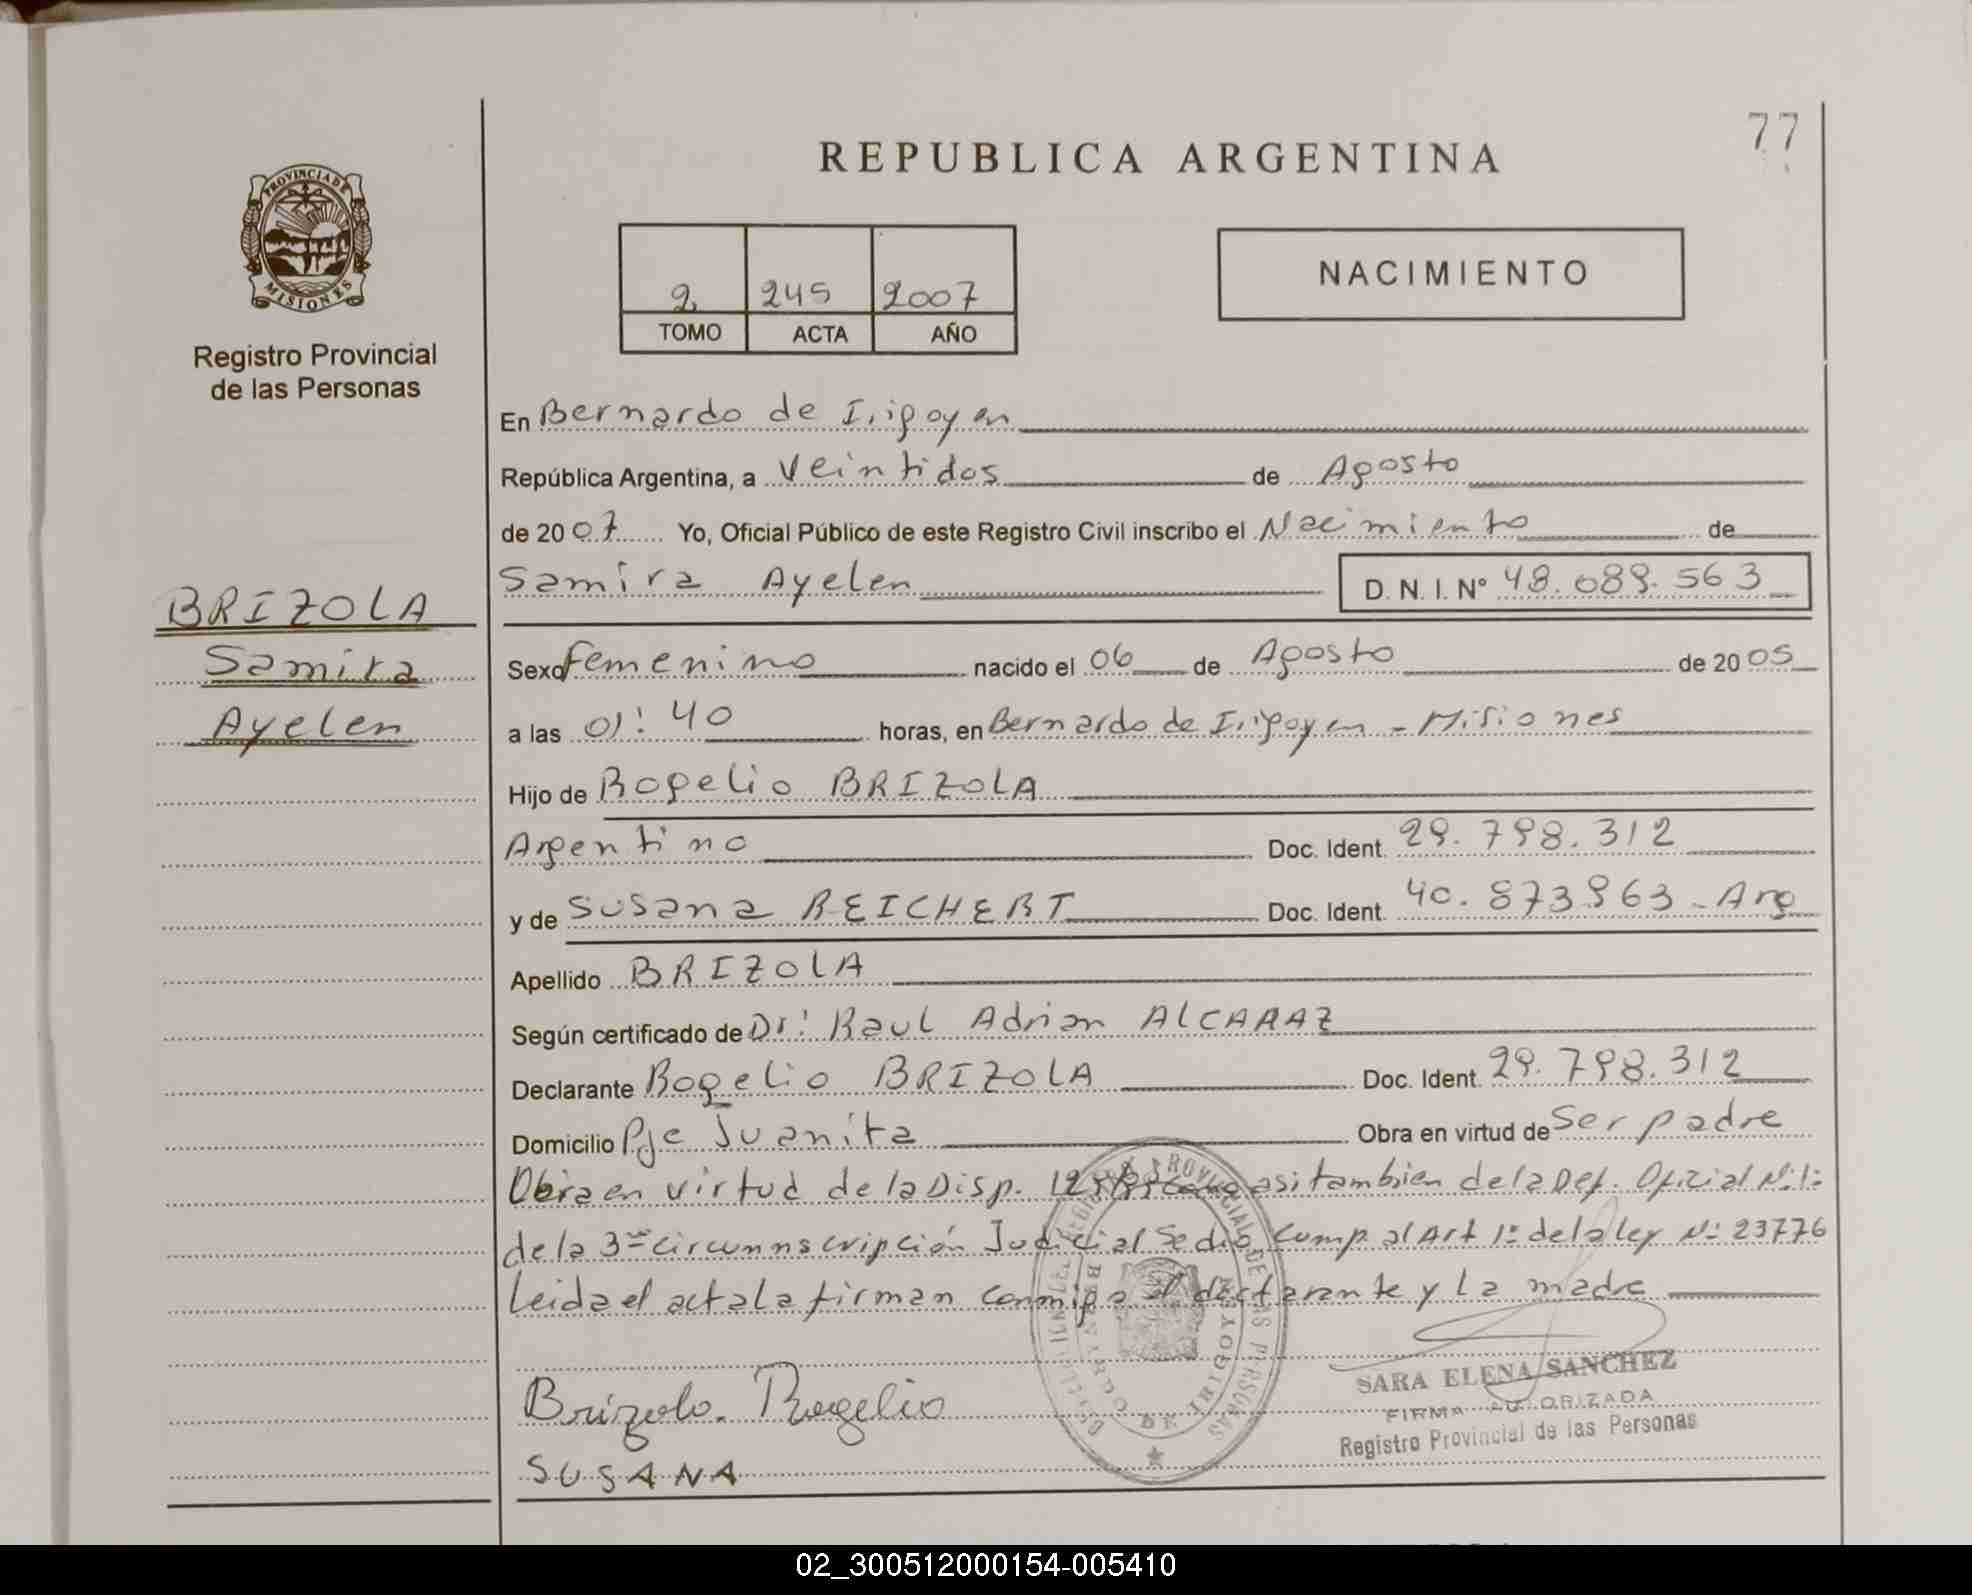 77
REPUBLICA ARGENTINA
PROVINCIA DE
MISIONES
Registro Provincial
de las Personas
2 245 2007
TOMO ACTA AÑO
NACIMIENTO
En Bernardo de Irigoyen
República Argentina, a Veintidos de Agosto
de 2007 Yo, Oficial Público de este Registro Civil inscribo el Nacimiento de
Samira Ayelen D. N. I. Nº 48.089.563
BRIZOLA
Samira
Ayelen
Sexo Femenino nacido el 06 de Agosto de 2005
a las 01:40 horas, en Bernardo de Irigoyen - Misiones
Hijo de Rogelio BRIZOLA
Argentino Doc. Ident. 29.798.312
y de Susana REICHERT Doc. Ident. 40.873963 - Arg
Apellido BRIZOLA
Según certificado de Dr: Raul Adrian ALCARAZ
Declarante Rogelio BRIZOLA Doc. Ident. 29.798.312
Domicilio Pje Juanita Obra en virtud de Ser padre
Obra en virtud de la Disp. asi tambien de la Def. Oficial Nº 1:
de la 3ra circunnscripción Judicial Se dio Cump. al Art 1º de la ley Nº 23776
Leida el acta la firman conmigo el declarante y La madre
Brizola. Rogelio
SUSANA
SARA ELENA SANCHEZ
FIRMA AUTORIZADA
Registro Provincial de las Personas
02_300512000154-005410